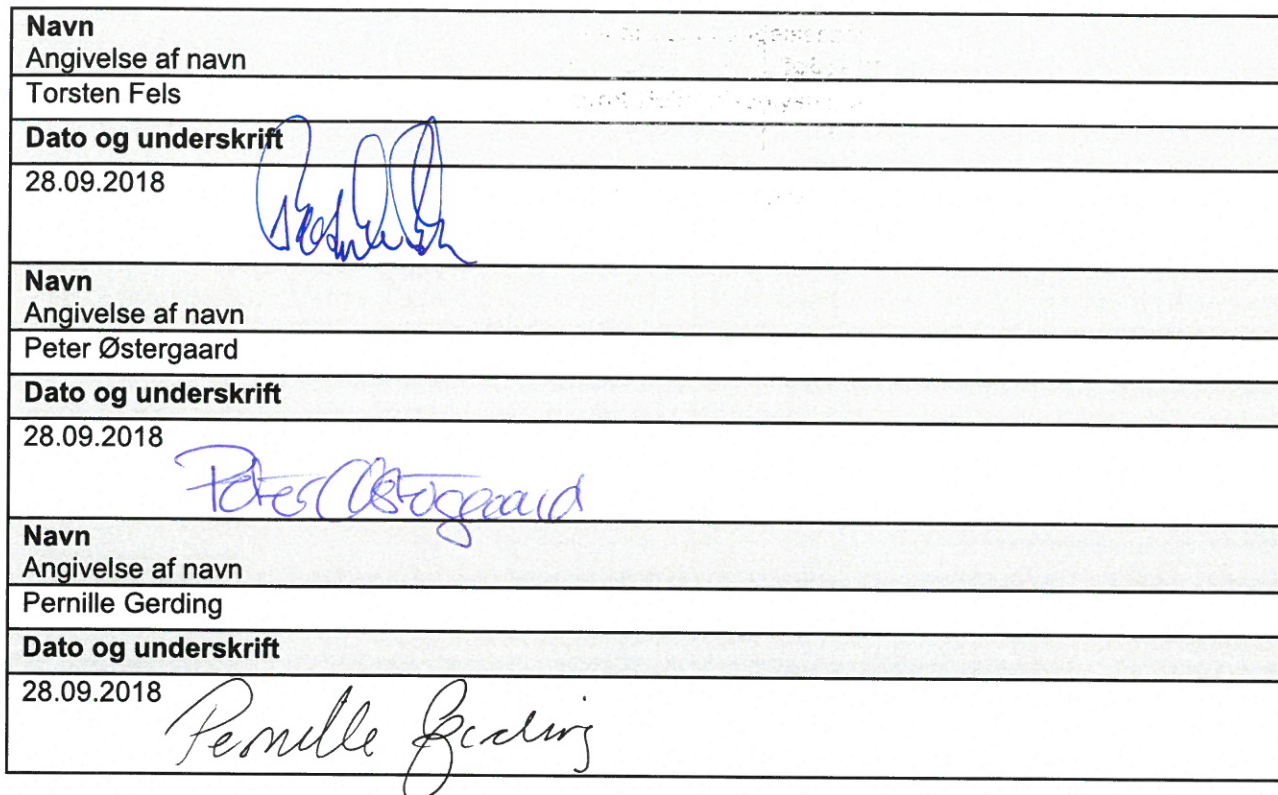 Navn
Angivelse af navn
Torsten Fels
Dato og underskrift
28.09.2018
Navn
Angivelse af navn
Peter Østergaard
Dato og underskrift
28.09.2018
Peter Østergaard
Navn
Angivelse af navn
Pernille Gerding
Dato og underskrift
28.09.2018
Pernille Gerding